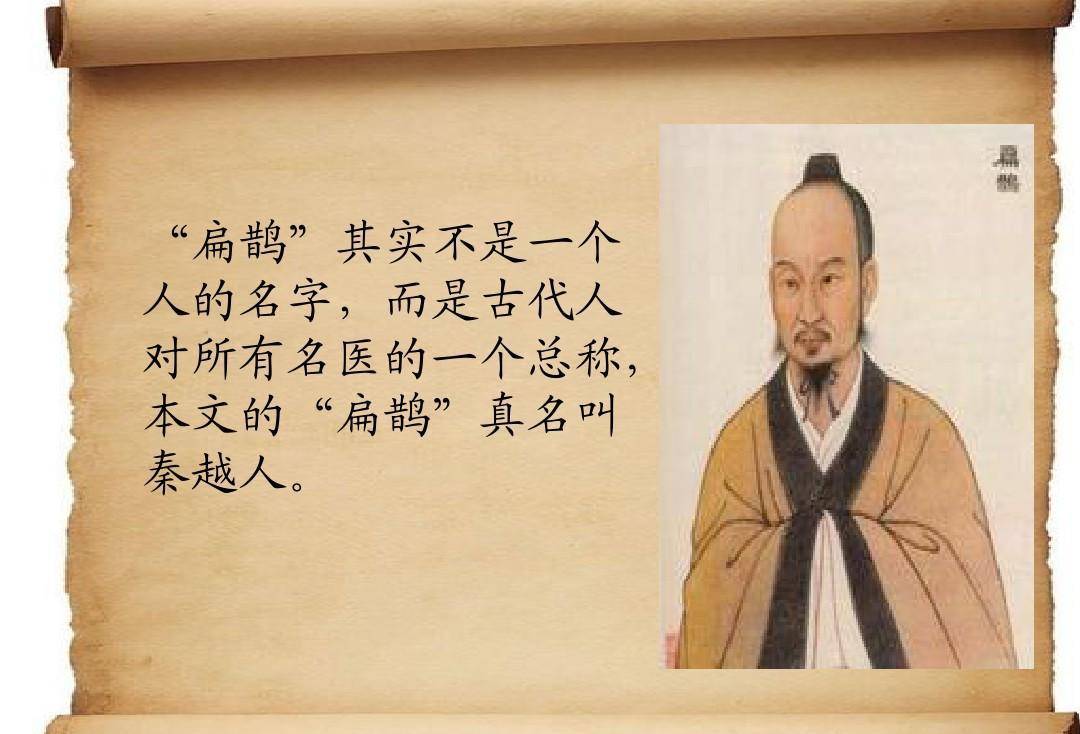 “扁鹊”其实不是一个
人的名字，而是古代人
对所有名医的一个总称，
本文的“扁鹊”真名叫
秦越人。
扁
鵲